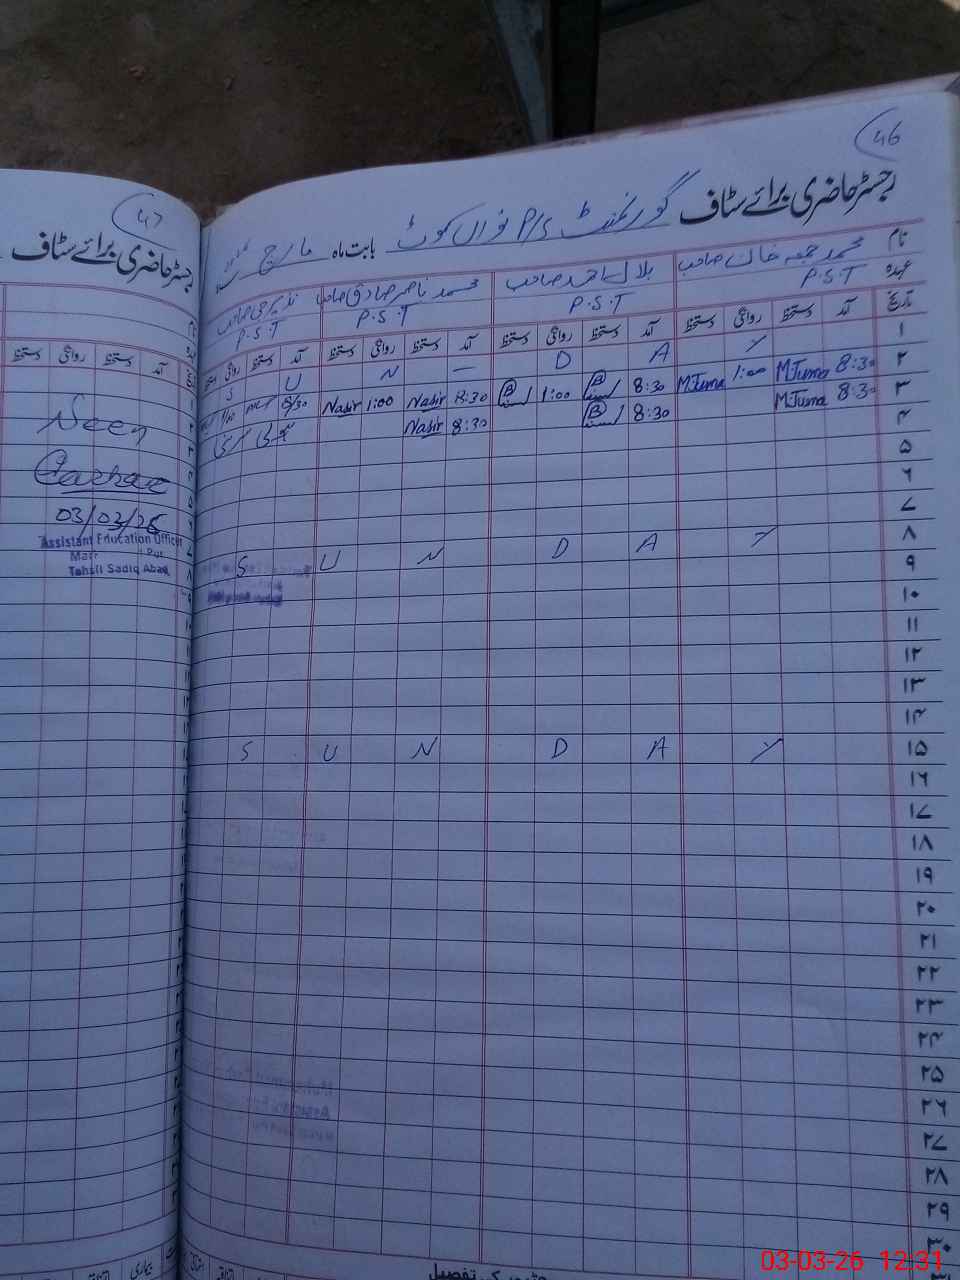 46
رجسٹر حاضری برائے سٹاف گورنمنٹ P/S نواں کوٹ بابت ماہ مارچ
نام محمد جمعہ خان صاحب بلال احمد صاحب محمد ناصر صادق صاحب
عہدہ P.S.T P.S.T P.S.T P.S.T
تاریخ آمد دستخط روانگی دستخط آمد دستخط روانگی دستخط آمد دستخط روانگی دستخط آمد دستخط روانگی دستخط
۱ S U N — D A Y
۲ 8:30 M.Juma 1:00 M.Juma 8:30 B 1:00 B 8:30 Nasir 1:00 Nasir 8/30
۳ 8:30 M.Juma 8:30 B 8:30 Nasir
۴
۵
۶
۷
۸ S U N D A Y
۹
۱۰
۱۱
۱۲
۱۳
۱۴
۱۵ S U N D A Y
۱۶
۱۷
۱۸
۱۹
۲۰
۲۱
۲۲
۲۳
۲۴
۲۵
۲۶
۲۷
۲۸
۲۹
۳۰
۳۱
کی تفصیل
47
رجسٹر حاضری برائے سٹاف
آمد دستخط روانگی دستخط
Seen
03/03/26
Assistant Education Officer
Pur
Tehsil Sadiq Abad
بیماری
03-03-26 12:31